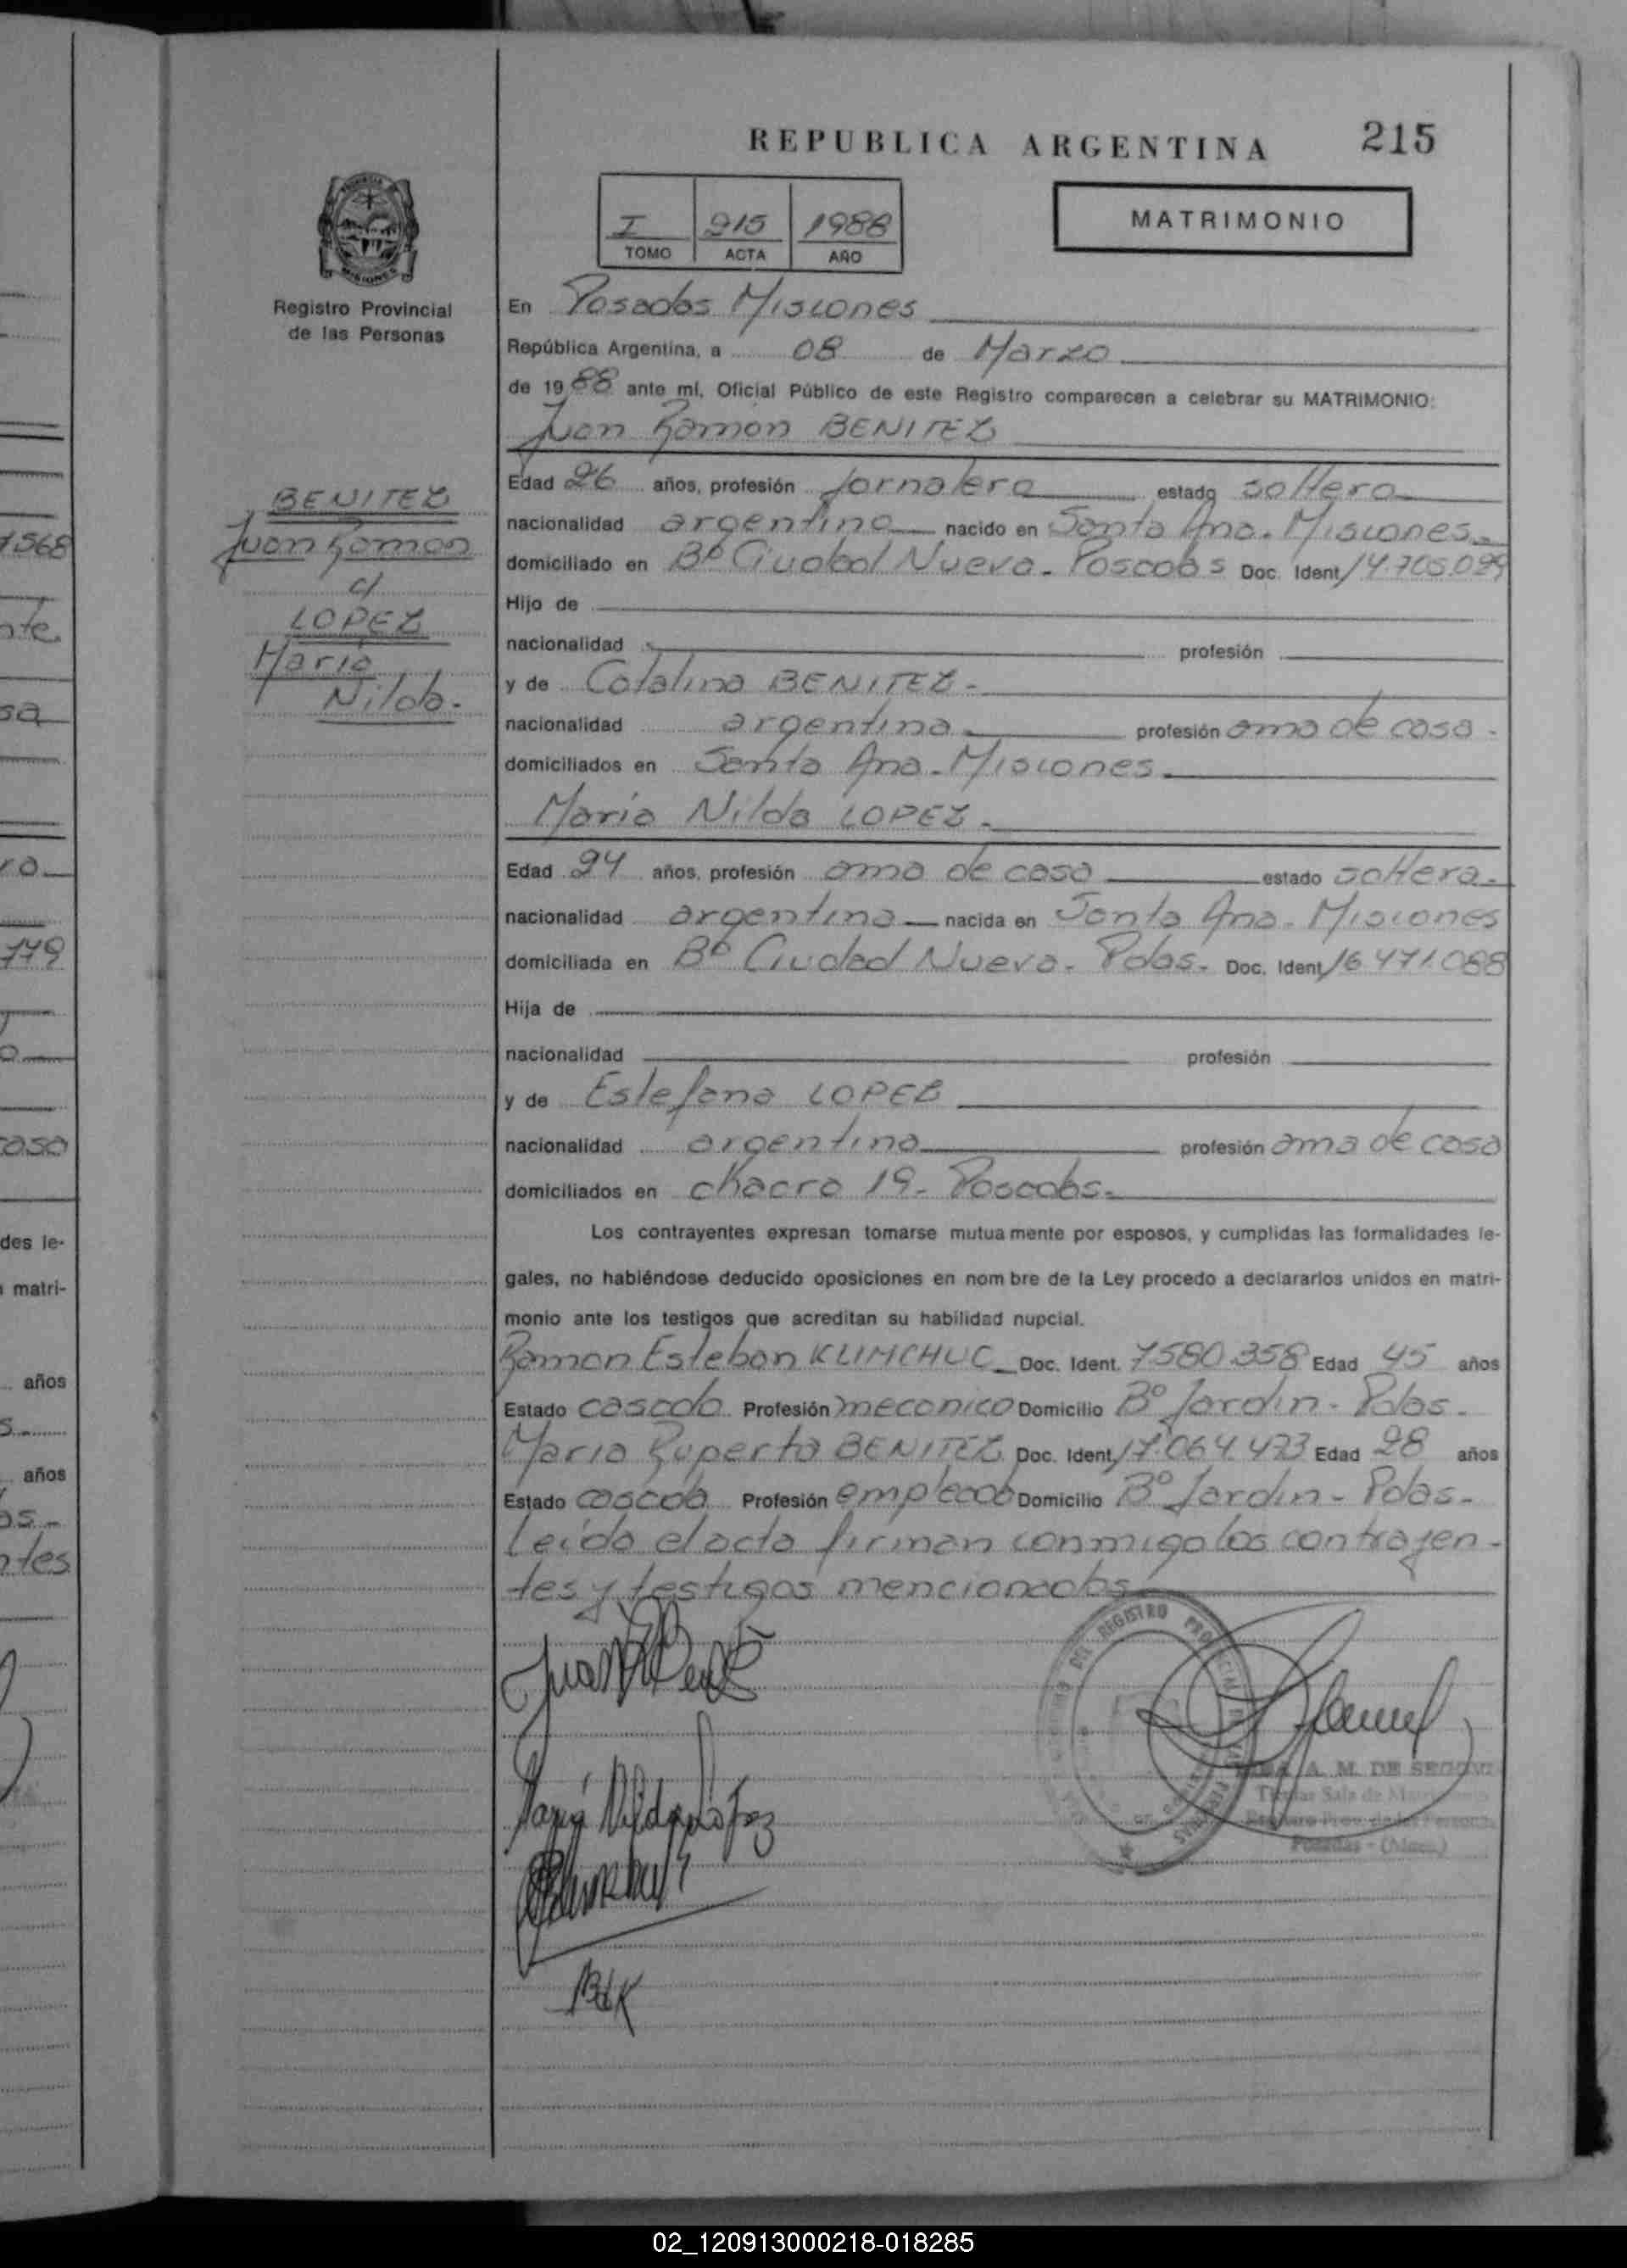 REPUBLICA ARGENTINA 215
I 215 1988
TOMO ACTA AÑO
MATRIMONIO
Registro Provincial
de las Personas
BENITEZ
Juan Ramon
c/
LOPEZ
Maria
Nilda.
En Posadas Misiones
República Argentina, a 08 de Marzo
de 1988 ante mí, Oficial Público de este Registro comparecen a celebrar su MATRIMONIO:
Juan Ramon BENITEZ
Edad 26 años, profesión Jornalero estado soltero
nacionalidad argentino nacido en Santa Ana. Misiones.
domiciliado en Bº Ciudad Nueva. Posadas Doc. Ident. 14.705.099
Hijo de
nacionalidad profesión
y de Catalina BENITEZ.
nacionalidad argentina profesión ama de casa.
domiciliados en Santa Ana. Misiones.
Maria Nilda LOPEZ.
Edad 24 años, profesión ama de casa estado soltera.
nacionalidad argentina nacida en Santa Ana. Misiones
domiciliada en Bº Ciudad Nueva. Pdas. Doc. Ident. 16.471.088
Hija de
nacionalidad profesión
y de Estefana LOPEZ
nacionalidad argentina profesión ama de casa
domiciliados en chacra 19. Posadas.
Los contrayentes expresan tomarse mutua mente por esposos, y cumplidas las formalidades le-
gales, no habiéndose deducido oposiciones en nom bre de la Ley procedo a declararlos unidos en matri-
monio ante los testigos que acreditan su habilidad nupcial.
Ramon Esteban KLIMCHUC Doc. Ident. 7580.358 Edad 45 años
Estado casado Profesión mecanico Domicilio Bº Jardin. Pdas.
Maria Ruperta BENITEZ Doc. Ident. 17.064.473 Edad 28 años
Estado casada Profesión empleada Domicilio Bº Jardin. Pdas.
Leida el acta firman conmigo los contrayen-
tes y testigos mencionados
Maria Nilda Lopez
A. M. DE
Titular Sala de
Posadas - (Mnes.)
02_120913000218-018285